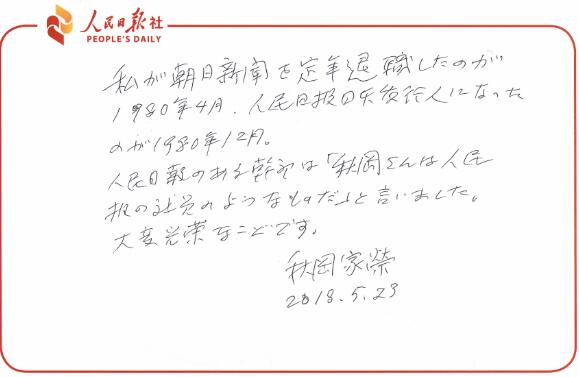 人民日报社
PEOPLE'S DAILY
私が朝日新聞を定年退職したのが
1980年4月、人民日报の发行人になった
のが1980年12月。
人民日報のある幹部は「秋岡さんは人民
报の社员のようなものだ」と言いました。
大変光栄なことです。
秋岡家榮
2018.5.23